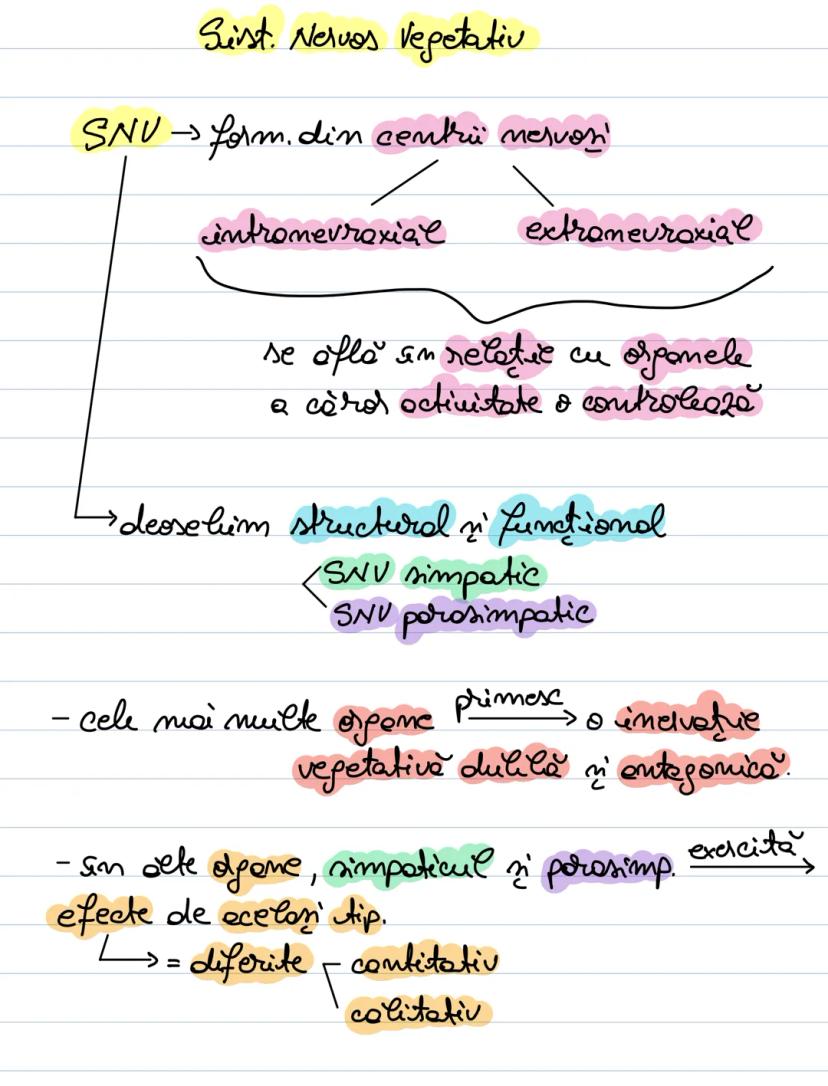 Sist. Nervos Vegetativ
SNV → form. din centrii nervoși
intranevraxial extranevraxial
se află în relație cu organele
a căror activitate o controlează
→ deosebim structural și funcțional
SNV simpatic
SNV parasimpatic
- cele mai multe organe primesc → o inervație
vegetativă dublă și antagonică.
- în alte organe, simpaticul și parasimp. exercită →
efecte de același tip.
→ = diferite - cantitativ
calitativ